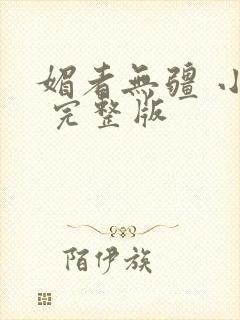 媚者無疆 小
完整版
陌伊族